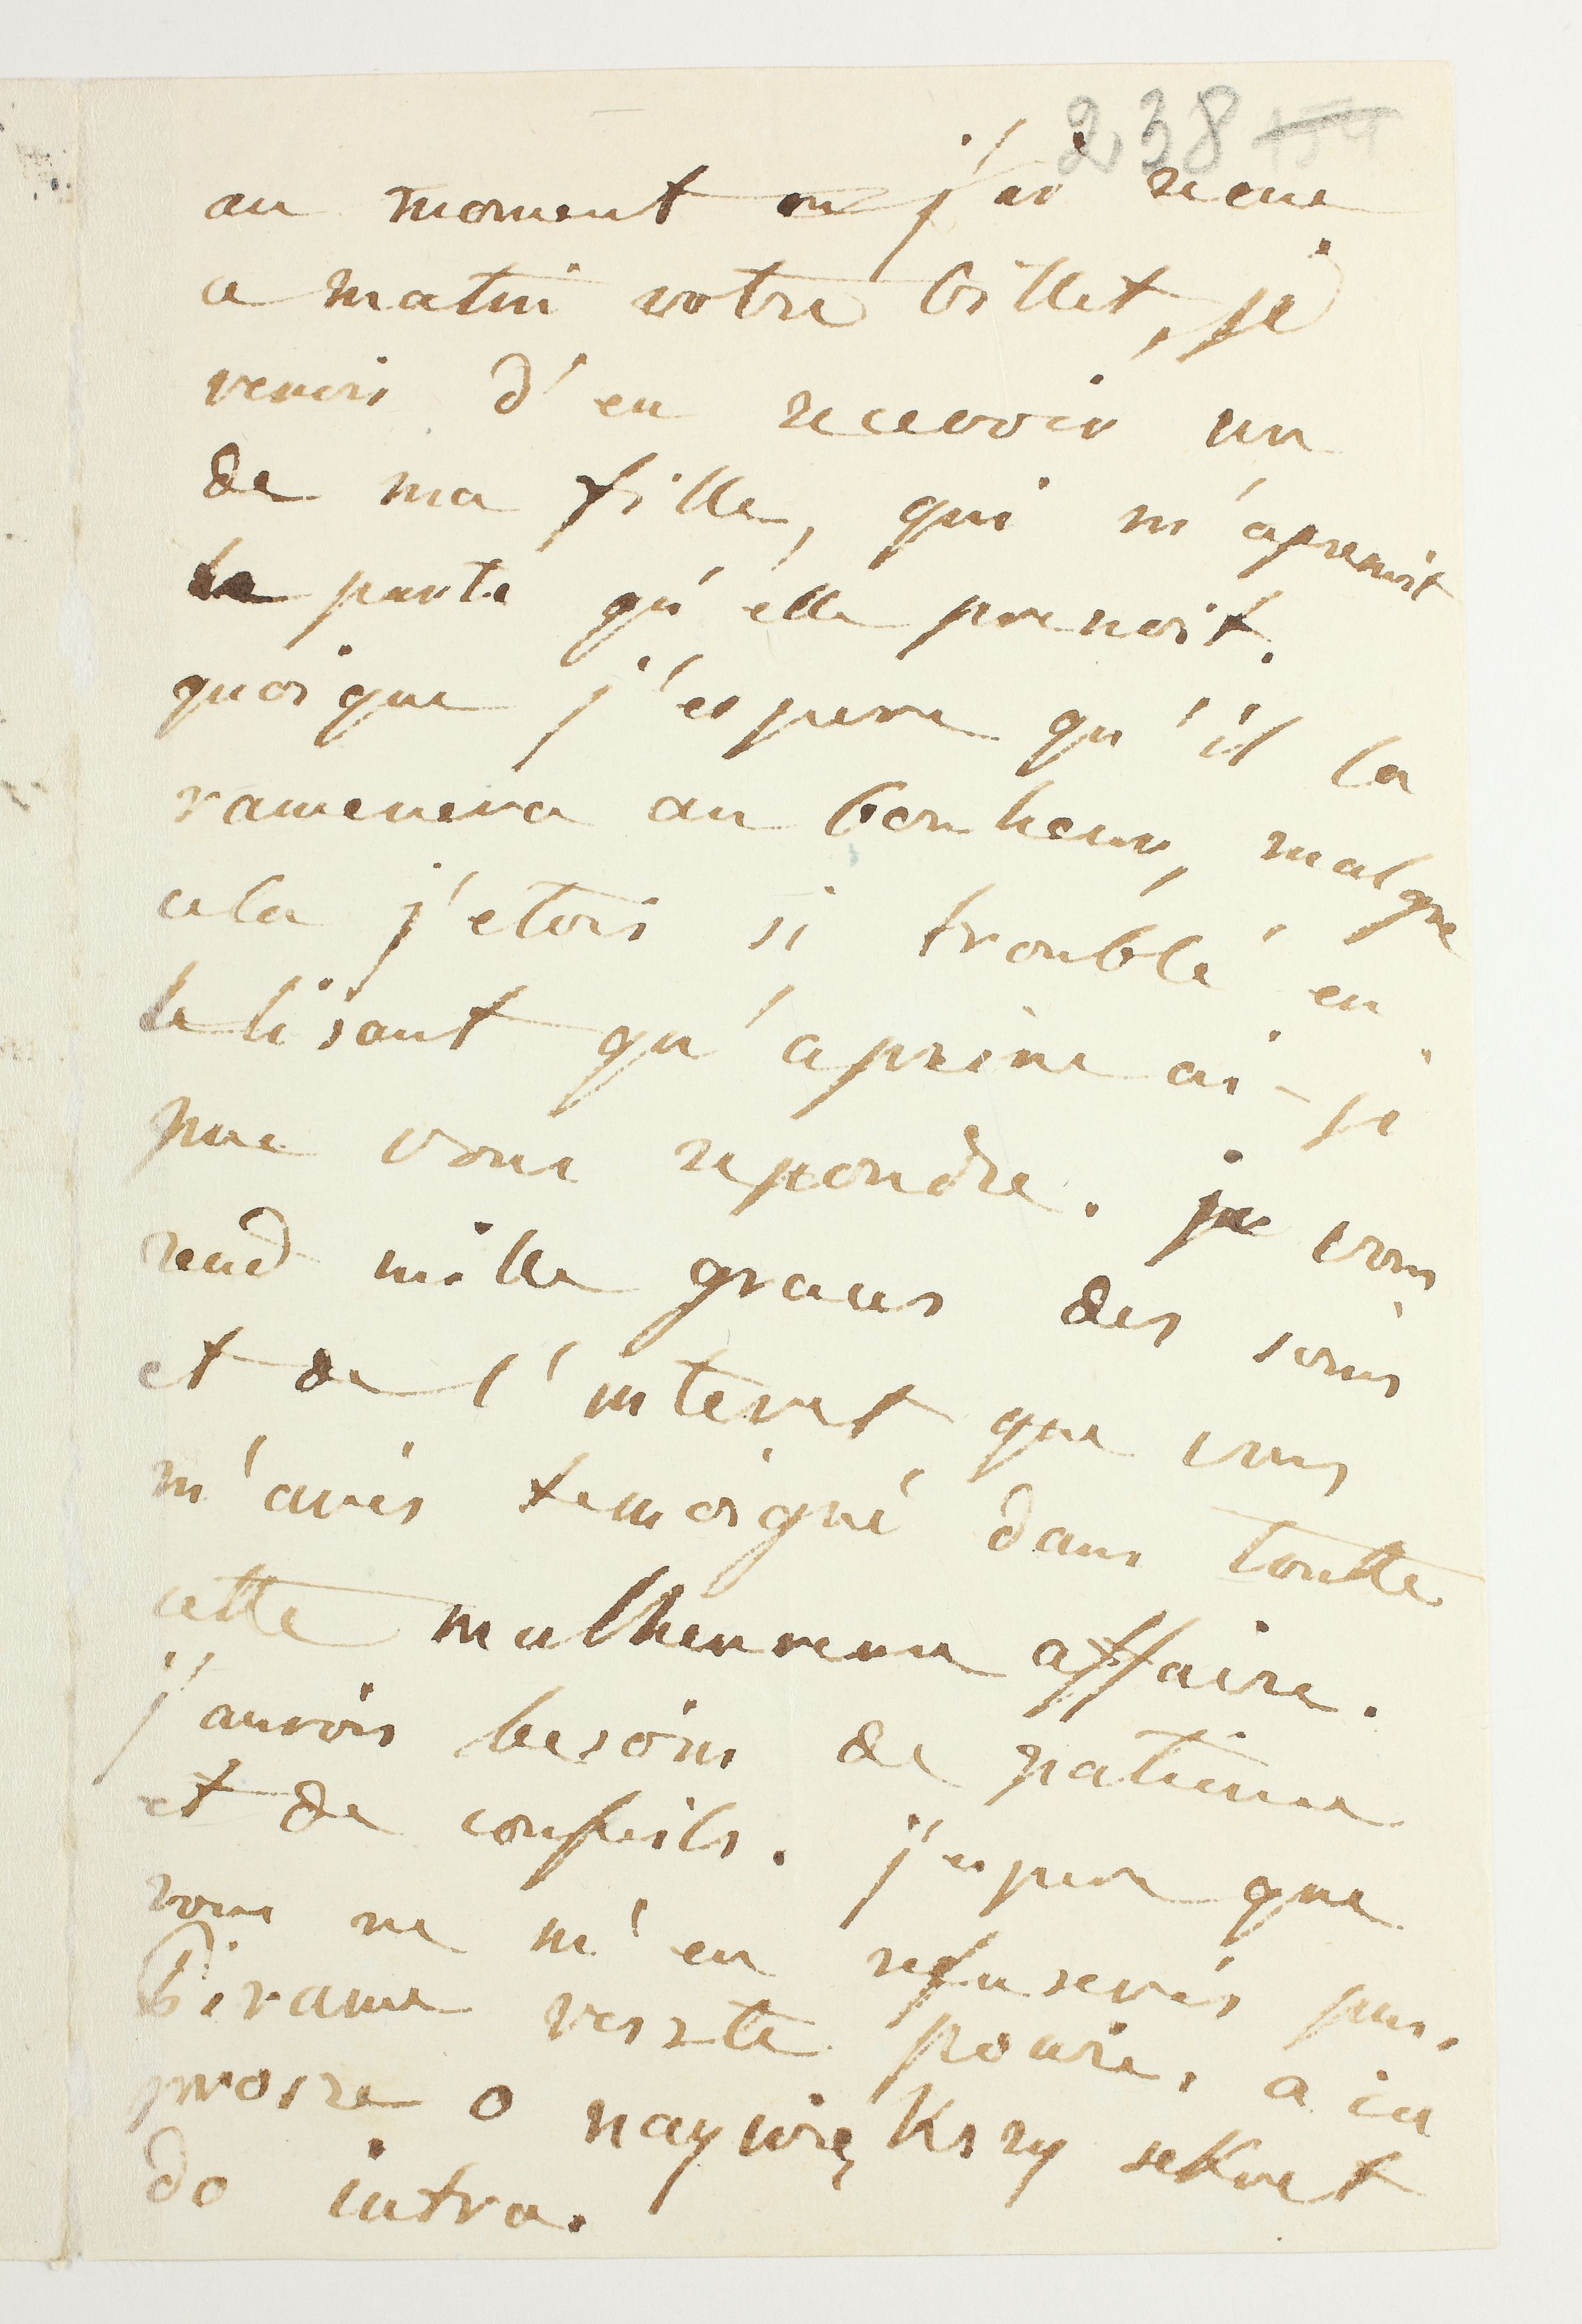 238
au moment ou j'ai recue
ce matin votre billet, je
venois d'en recevoir un
de ma fille, qui m'aprenoit
le partie qu'elle prenoit.
quoique j'espere qu'il la
ramenera au bonheur, malgre
cela j'etois si troublé en
le lisant qu'a peine ai-je
pue vous repondre. je vous
rend mille graces des soins
et de l'interet que vous
m'avés temoigné dans toutte
cette malheureuse affaire.
j'aurois besoins de patience
et de conseils. j'espere que
vous ne m'en refuserés pas.
Pirame reszte powie, a ia
prosze o naywiększy sekret
do iutra.